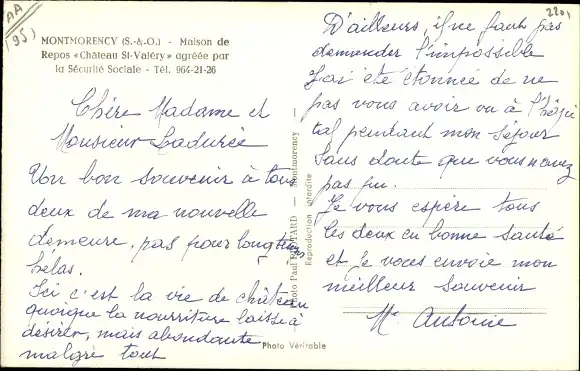 AA
(95)
2201
MONTMORENCY (S.-&-O.) - Maison de
Repos «Château St-Valéry» agréée par
la Sécurité Sociale - Tél. 964-21-26
Chère Madame et
Monsieur Ladurée
Un bon souvenir à tous
deux de ma nouvelle
demeure, pas pour longtemps
hélas.
Ici c'est la vie de château
quoique la nourriture laisse à
désirer, mais abondante
malgré tout
D'ailleurs, il ne faut pas
demander l'impossible
J'ai été étonnée de ne
pas vous avoir vu à l'hôpi
tal pendant mon séjour
Sans doute que vous n'avez
pas pu.
Je vous espère tous
les deux en bonne santé
et je vous envoie mon
meilleur souvenir
Me Antoine
Photo Paul - Montmorency
Reproduction interdite
Photo Véritable